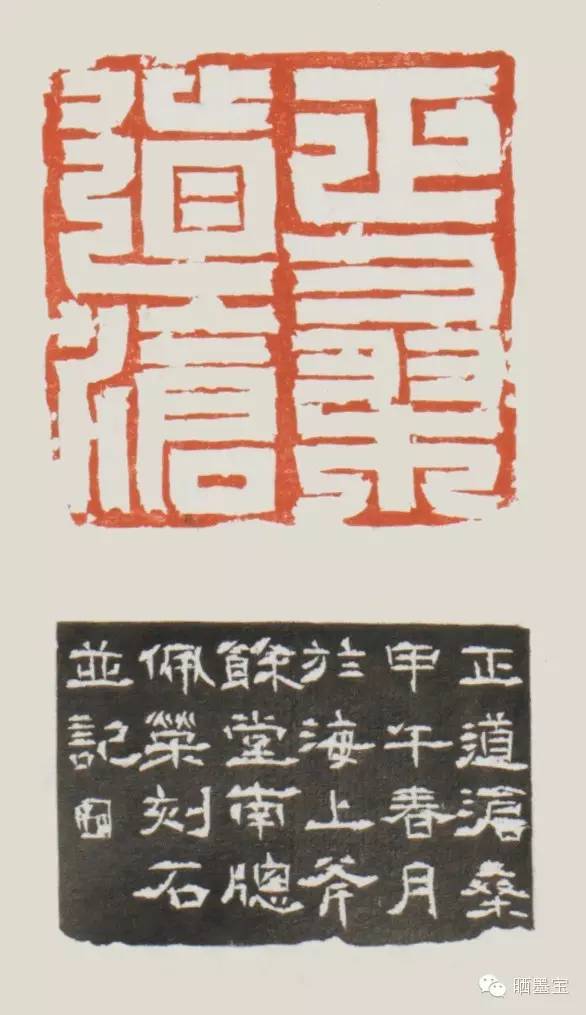 正道滄桑
正道滄桑
甲午春月
於海上斧
餘堂南牕
佩榮刻石
並記
晒墨宝